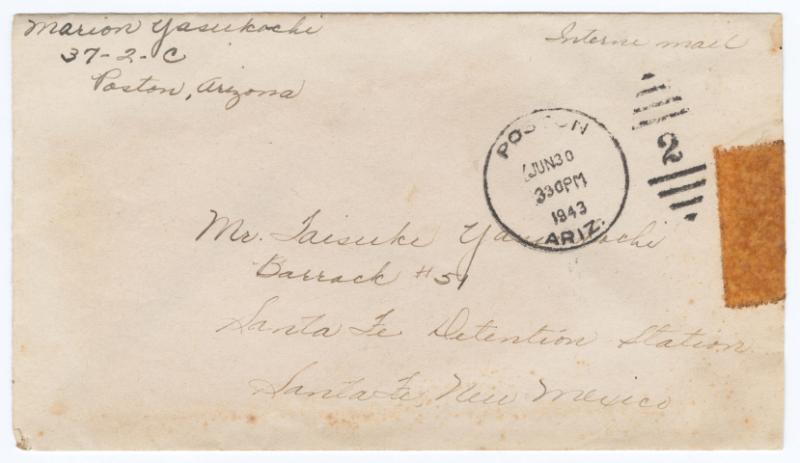 Marion Yasukochi
37-2-C
Poston, Arizona
Interne mail
POSTON
JUN 30
330 PM
1943
ARIZ.
2
Mr. Taisuke Yasukochi
Barrack #51
Santa Fe Detention Station
Santa Fe, New Mexico